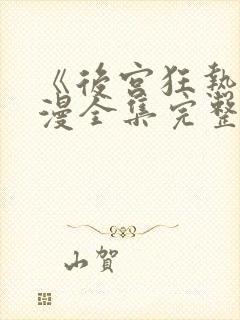 《後宮狂熱
漫全集完整
山賀